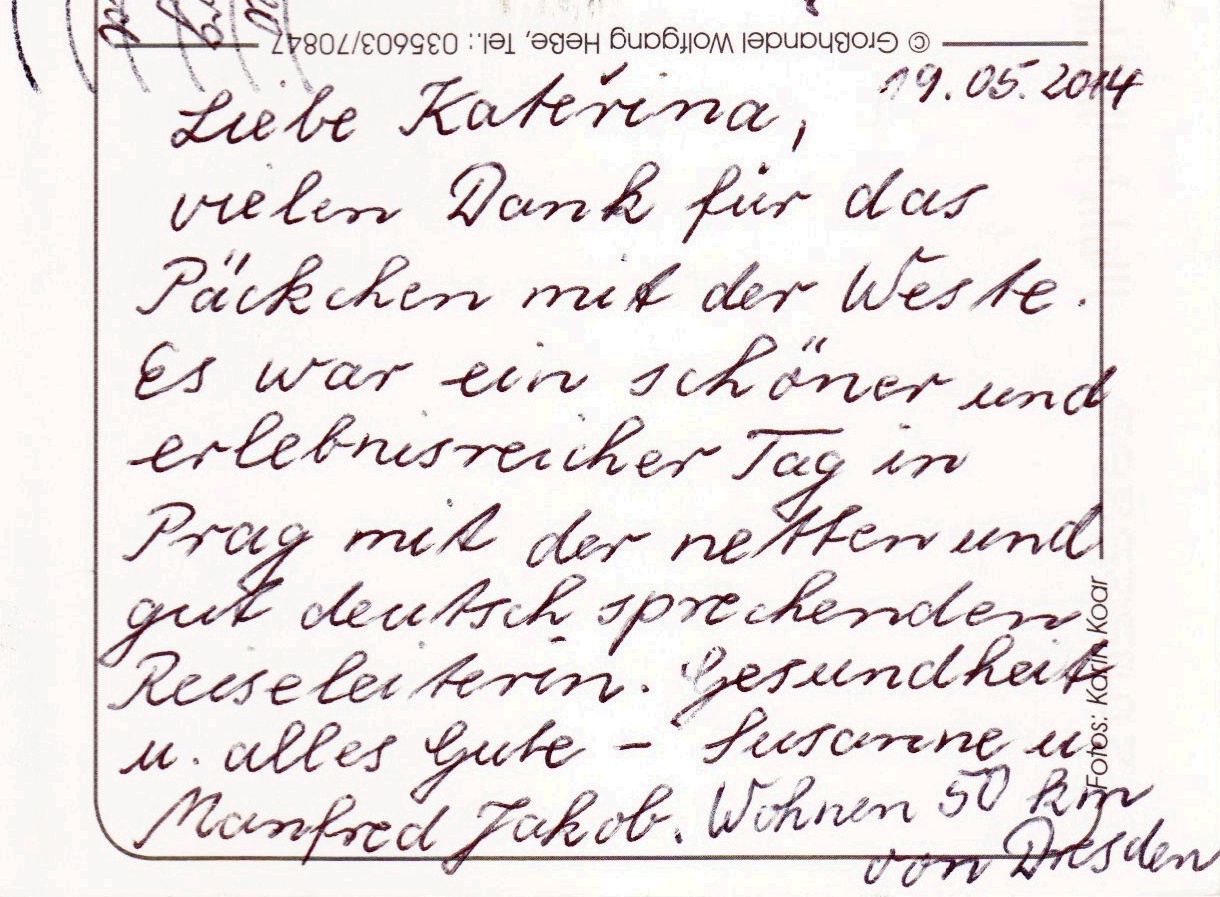 © Großhandel Wolfgang Heße, Tel.: 035603/70847
19.05.2014
Liebe Kateřina,
vielen Dank für das
Päckchen mit der Weste.
Es war ein schöner und
erlebnisreicher Tag in
Prag mit der netten und
gut deutsch sprechenden
Reiseleiterin. Gesundheit
u. alles Gute – Susanne u.
Manfred Jakob. Wohnen 50 km
von Dresden
Fotos: Karin Koar